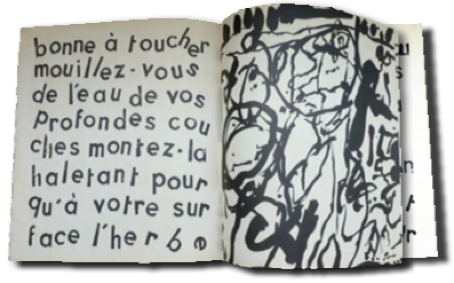 bonne à toucher
mouillez-vous
de l'eau de vos
profondes cou
ches montez-la
haletant pour
qu'à votre sur
face l'herbe